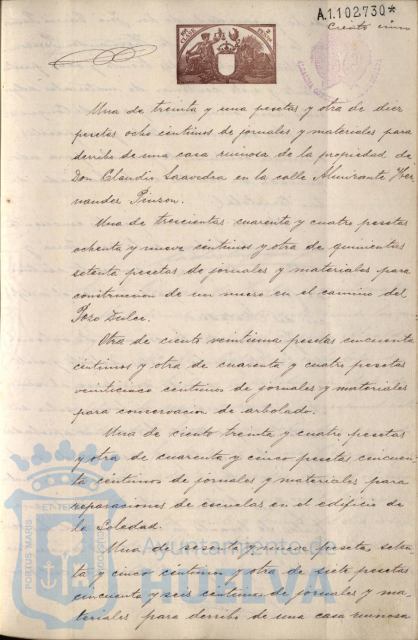 A.1.102.730*
Ciento cinco
Una de treinta y una pesetas y otra de diez
pesetas ocho centimos de jornales y materiales para
derribo de una casa ruinosa de la propiedad de
Don Claudio Saavedra en la calle Almirante Her
nander Pinzon.
Una de trescientas cuarenta y cuatro pesetas
ochenta y nueve centimos y otra de quinientas
setenta pesetas de jornales y materiales para
construccion de un muro en el camino del
Pozo Dulce.
Otra de ciento veintiuna pesetas cincuenta
centimos y otra de cuarenta y cuatro pesetas
veinticinco centimos de jornales y materiales
para conservacion de arbolado.
Una de ciento treinta y cuatro pesetas
y otra de cuarenta y cinco pesetas cincuen
ta centimos de jornales y materiales para
reparaciones de escuelas en el edificio de
la Soledad.
Una de sesenta y nueve pesetas seten
ta y cinco centimos y otra de siete pesetas
cincuenta y seis centimos de jornales y ma-
teriales para derribo de una casa ruinosa
PORTUS MARIS
ET TERRAE
CUSTODIA
Ayuntamiento de
HUELVA